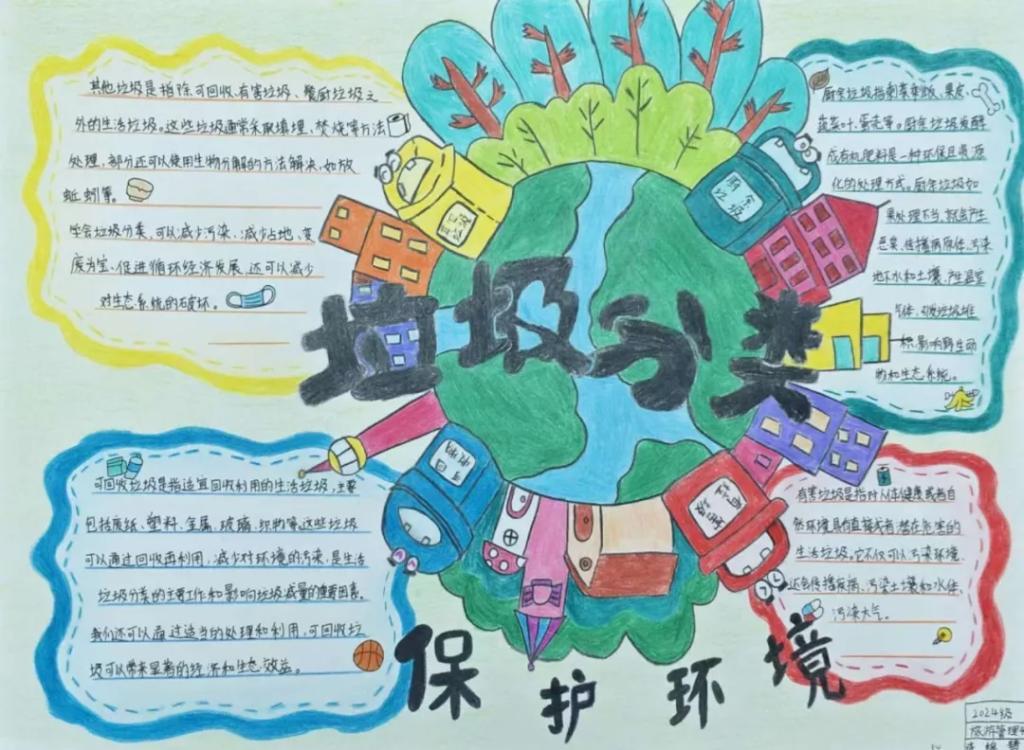 其他垃圾是指除可回收、有害垃圾、餐厨垃圾之
外的生活垃圾。这些垃圾通常采取填埋、焚烧等方法
处理,部分还可以使用生物分解的方法解决,如放
蚯蚓等。
学会垃圾分类,可以减少污染、减少占地、变
废为宝、促进循环经济发展,还可以减少
对生态系统的破坏。
厨余垃圾指剩菜剩饭、果皮、
蔬菜叶、蛋壳等。厨余垃圾发酵
成有机肥料是一种环保且资源
化的处理方式。厨余垃圾如
果处理不当,就会产生
恶臭、传播病原体、污染
地下水和土壤、产生温室
气体,
积,影响野生动
物和生态系统。
厨余
垃圾
垃圾分类
可回收垃圾是指适宜回收利用的生活垃圾,主要
包括废纸、塑料、金属、玻璃、织物等这些垃圾
可以通过回收再利用,减少对环境的污染,是生活
垃圾分类的主要工作和影响垃圾减量的重要因素。
我们还可以通过适当的处理和利用,可回收垃
圾可以带来显著的经济和生态效益。
有害垃圾是指对人体健康或者自
然环境具有直接或者潜在危害的
生活垃圾,它不仅可以污染环境,
还会传播疾病、污染土壤和水体、
污染大气。
保护环境
2024级
旅游管理